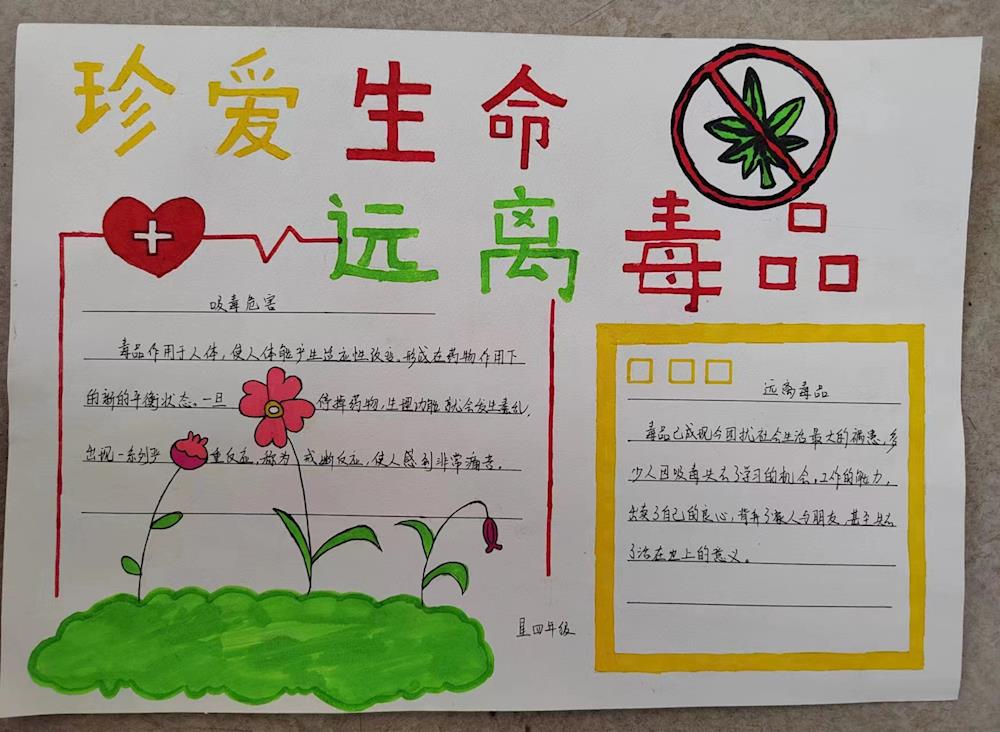 珍爱生命
远离毒品
吸毒危害
毒品作用于人体，使人体能产生适应性改变，形成在药物作用下
的新的平衡状态。一旦停掉药物，生理功能就会发生紊乱，
出现一系列严重反应，称为戒断反应，使人感到非常痛苦。
远离毒品
毒品已成现今困扰社会生活最大的祸患，多
少人因吸毒失去了学习的机会，工作的能力，
出卖了自己的良心，背弃了家人与朋友，甚至失去
了活在世上的意义。
星四年级